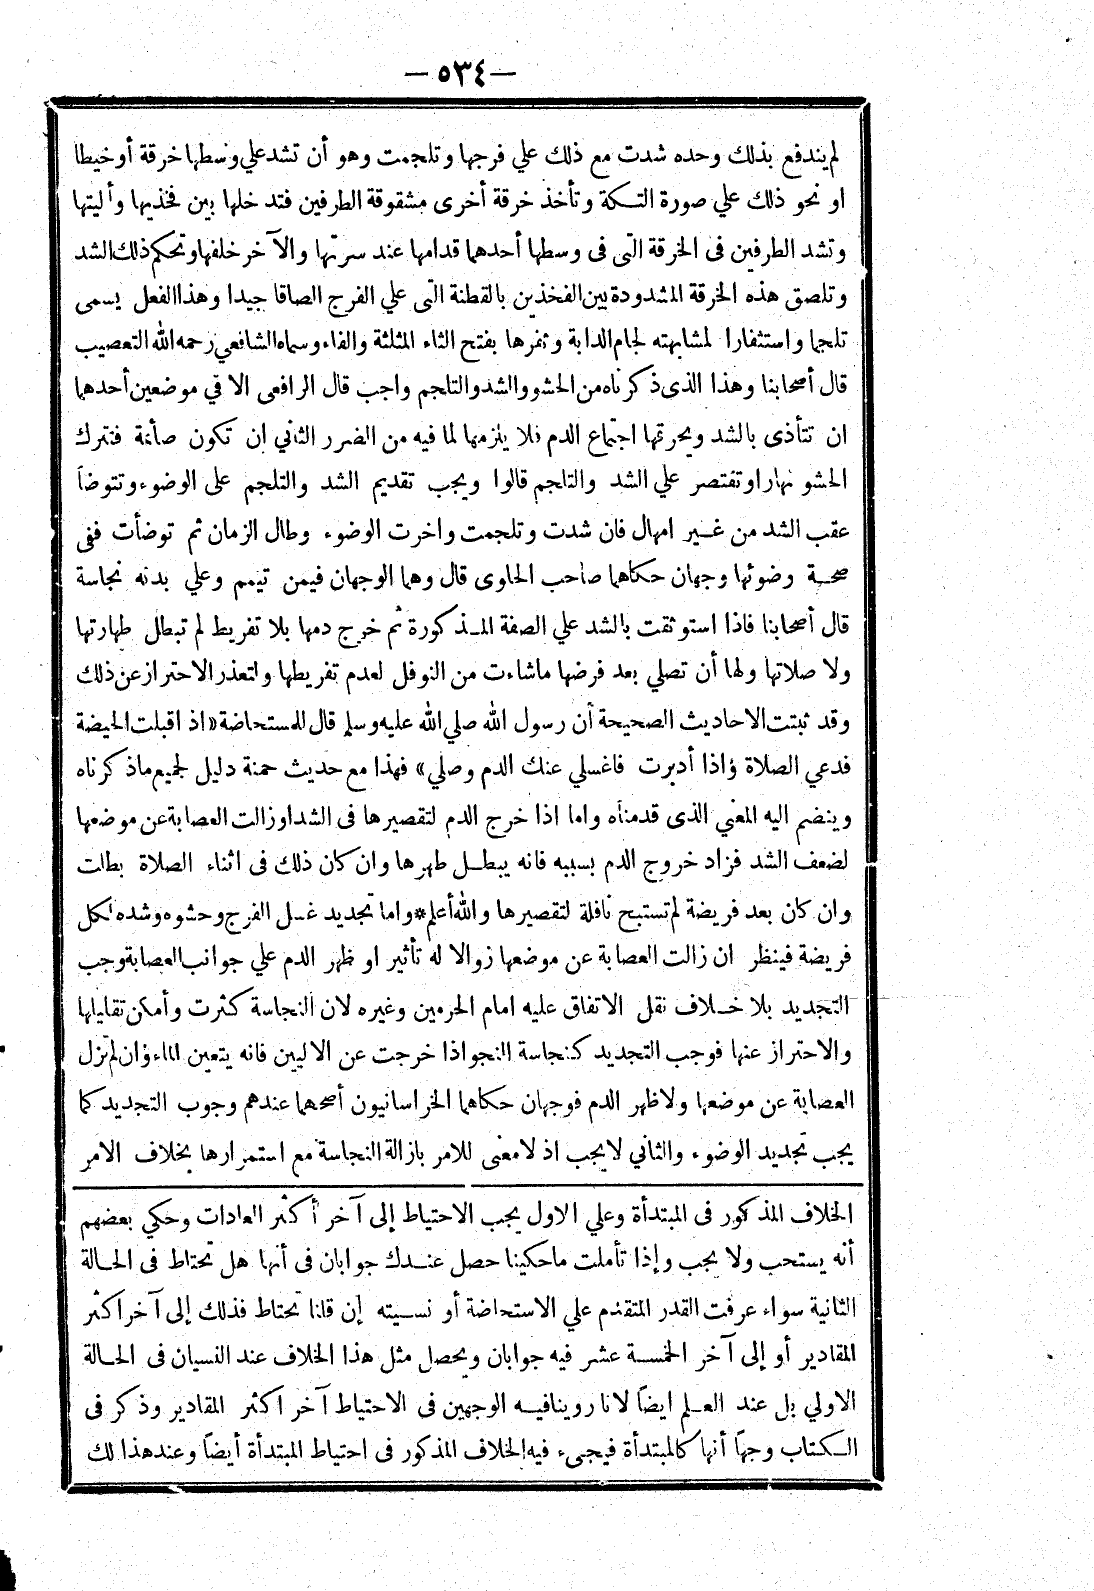 — ٥٣٤ —
لم يندفع بذلك وحده شدت مع ذلك علي فرجها وتلجمت وهو أن تشد علي وسطها خرقة أو خيطا
او نحو ذلك علي صورة التكة وتأخذ خرقة أخرى مشقوقة الطرفين فتدخلها بين فخذيها وأليتها
وتشد الطرفين فى الخرقة التى فى وسطها أحدهما قدامها عند سرتها والآخر خلفها وتحكم ذلك الشد
وتلصق هذه الخرقة المشدودة بين الفخذين بالقطنة التى علي الفرج الصاقا جيدا وهذا الفعل يسمى
تلجما واستثفارا لمشابهته لجام الدابة وثفرها بفتح الثاء المثلثة والفاء وسماه الشافعي رحمه الله التعصيب
قال أصحابنا وهذا الذى ذكرناه من الحشو والشد والتلجم واجب قال الرافعى الا فى موضعين أحدهما
ان تتأذى بالشد ويحرقها اجتماع الدم فلا يلزمها لما فيه من الضرر الثاني ان تكون صائمة فتترك
الحشو نهارا وتقتصر علي الشد والتلجم قالوا ويجب تقديم الشد والتلجم على الوضوء وتتوضأ
عقب الشد من غير امهال فان شدت وتلجمت واخرت الوضوء وطال الزمان ثم توضأت ففى
صحة وضوئها وجهان حكاهما صاحب الحاوى قال وهما الوجهان فيمن تيمم وعلي بدنه نجاسة
قال أصحابنا فاذا استوثقت بالشد علي الصفة المذكورة ثم خرج دمها بلا تفريط لم تبطل طهارتها
ولا صلاتها ولها أن تصلي بعد فرضها ماشاءت من النوفل لعدم تفريطها ولتعذر الاحتراز عن ذلك
وقد ثبتت الاحاديث الصحيحة أن رسول الله صلي الله عليه وسلم قال للمستحاضة «اذ اقبلت الحيضة
فدعي الصلاة وإذا أدبرت فاغسلي عنك الدم وصلي» فهذا مع حديث حمنة دليل لجميع ماذكرناه
وينضم اليه المعني الذى قدمناه واما اذا خرج الدم لتقصيرها فى الشد او زالت العصابة عن موضعها
لضعف الشد فزاد خروج الدم بسببه فانه يبطل طهرها وان كان ذلك فى اثناء الصلاة بطلت
وان كان بعد فريضة لم تستبح نافلة لتقصيرها والله أعلم * واما تجديد غسل الفرج وحشوه وشده لكل
فريضة فينظر ان زالت العصابة عن موضعها زوالا له تأثير او ظهر الدم علي جوانب العصابة وجب
التجديد بلا خلاف نقل الاتفاق عليه امام الحرمين وغيره لان النجاسة كثرت وأمكن تقليلها
والاحتراز عنها فوجب التجديد كنجاسة النجو اذا خرجت عن الاليين فانه يتعين الماء وان لم تزل
العصابة عن موضعها ولا ظهر الدم فوجهان حكاهما الخراسانيون أصحهما عندهم وجوب التجديد كما
يجب تجديد الوضوء والثاني لايجب اذ لا معنى للامر بازالة النجاسة مع استمرارها بخلاف الامر
الخلاف المذكور فى المبتدأة وعلي الاول يجب الاحتياط إلى آخر أكثر العادات وحكي بعضهم
أنه يستحب ولا يجب وإذا تأملت ماحكينا حصل عندك جوابان فى أنها هل تحتاط فى الحالة
الثانية سواء عرفت القدر المتقدم علي الاستحاضة أو نسيته إن قلنا تحتاط فذلك إلى آخر اكثر
المقادير أو إلى آخر الخمسة عشر فيه جوابان ويحصل مثل هذا الخلاف عند النسيان فى الحالة
الاولي بل عند العلم ايضًا لانا روينا فيه الوجهين فى الاحتياط آخر اكثر المقادير وذكر فى
الكتاب وجهًا أنها كالمبتدأة فيجىء فيه الخلاف المذكور فى احتياط المبتدأة أيضًا وعند هذا لك